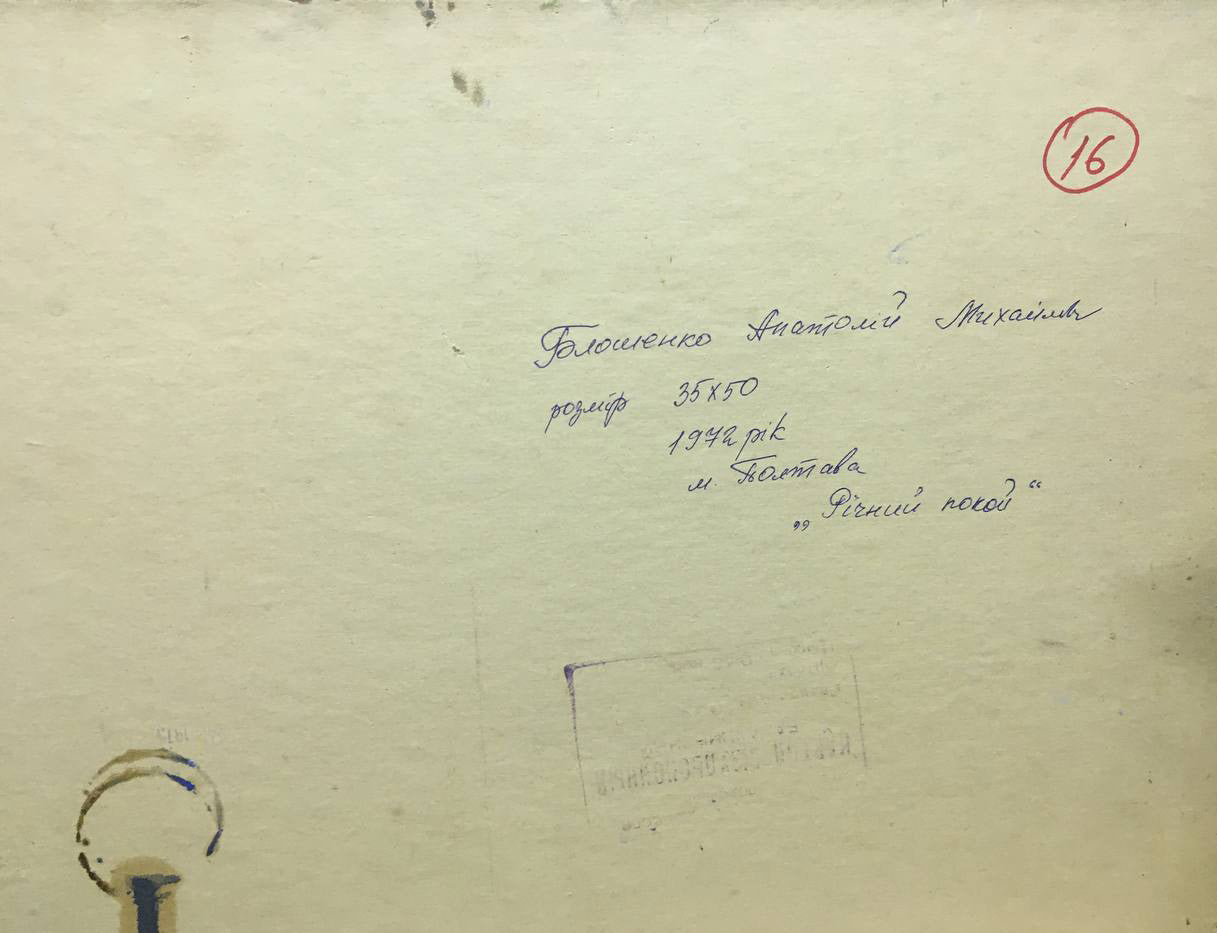 16
Блошенко Анатолій Михайлович
розмір 35х50
1972 рік
м. Полтава
„Річний покой“